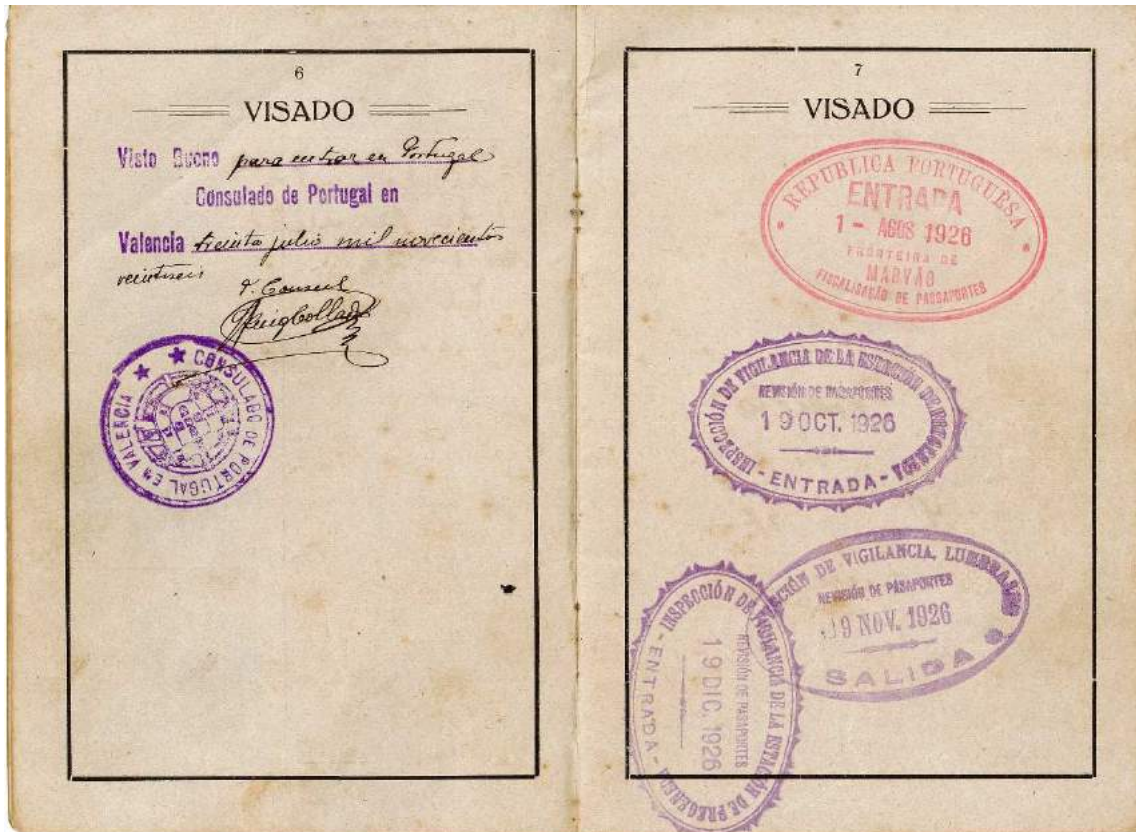 6
VISADO
Visto Bueno para entrar en Portugal
Consulado de Portugal en
Valencia treinta julio mil novecientos
veintiseis
Consul
CONSULADO DE PORTUGAL EM VALENCIA
7
VISADO
REPUBLICA PORTUGUESA
ENTRADA
1 - AGOS 1926
FRONTEIRA DE
MARVÃO
FISCALISAÇÃO DE PASSAPORTES
INSPECCIÓN DE VIGILANCIA DE LA
REVISIÓN DE PASAPORTES
19 OCT. 1926
- ENTRADA -
VIGILANCIA, LUMBRALES
REVISIÓN DE PASAPORTES
9 NOV. 1926
SALIDA
INSPECCIÓN DE VIGILANCIA DE LA ESTACIÓN DE
REVISIÓN DE PASAPORTES
19 DIC. 1926
- ENTRADA -